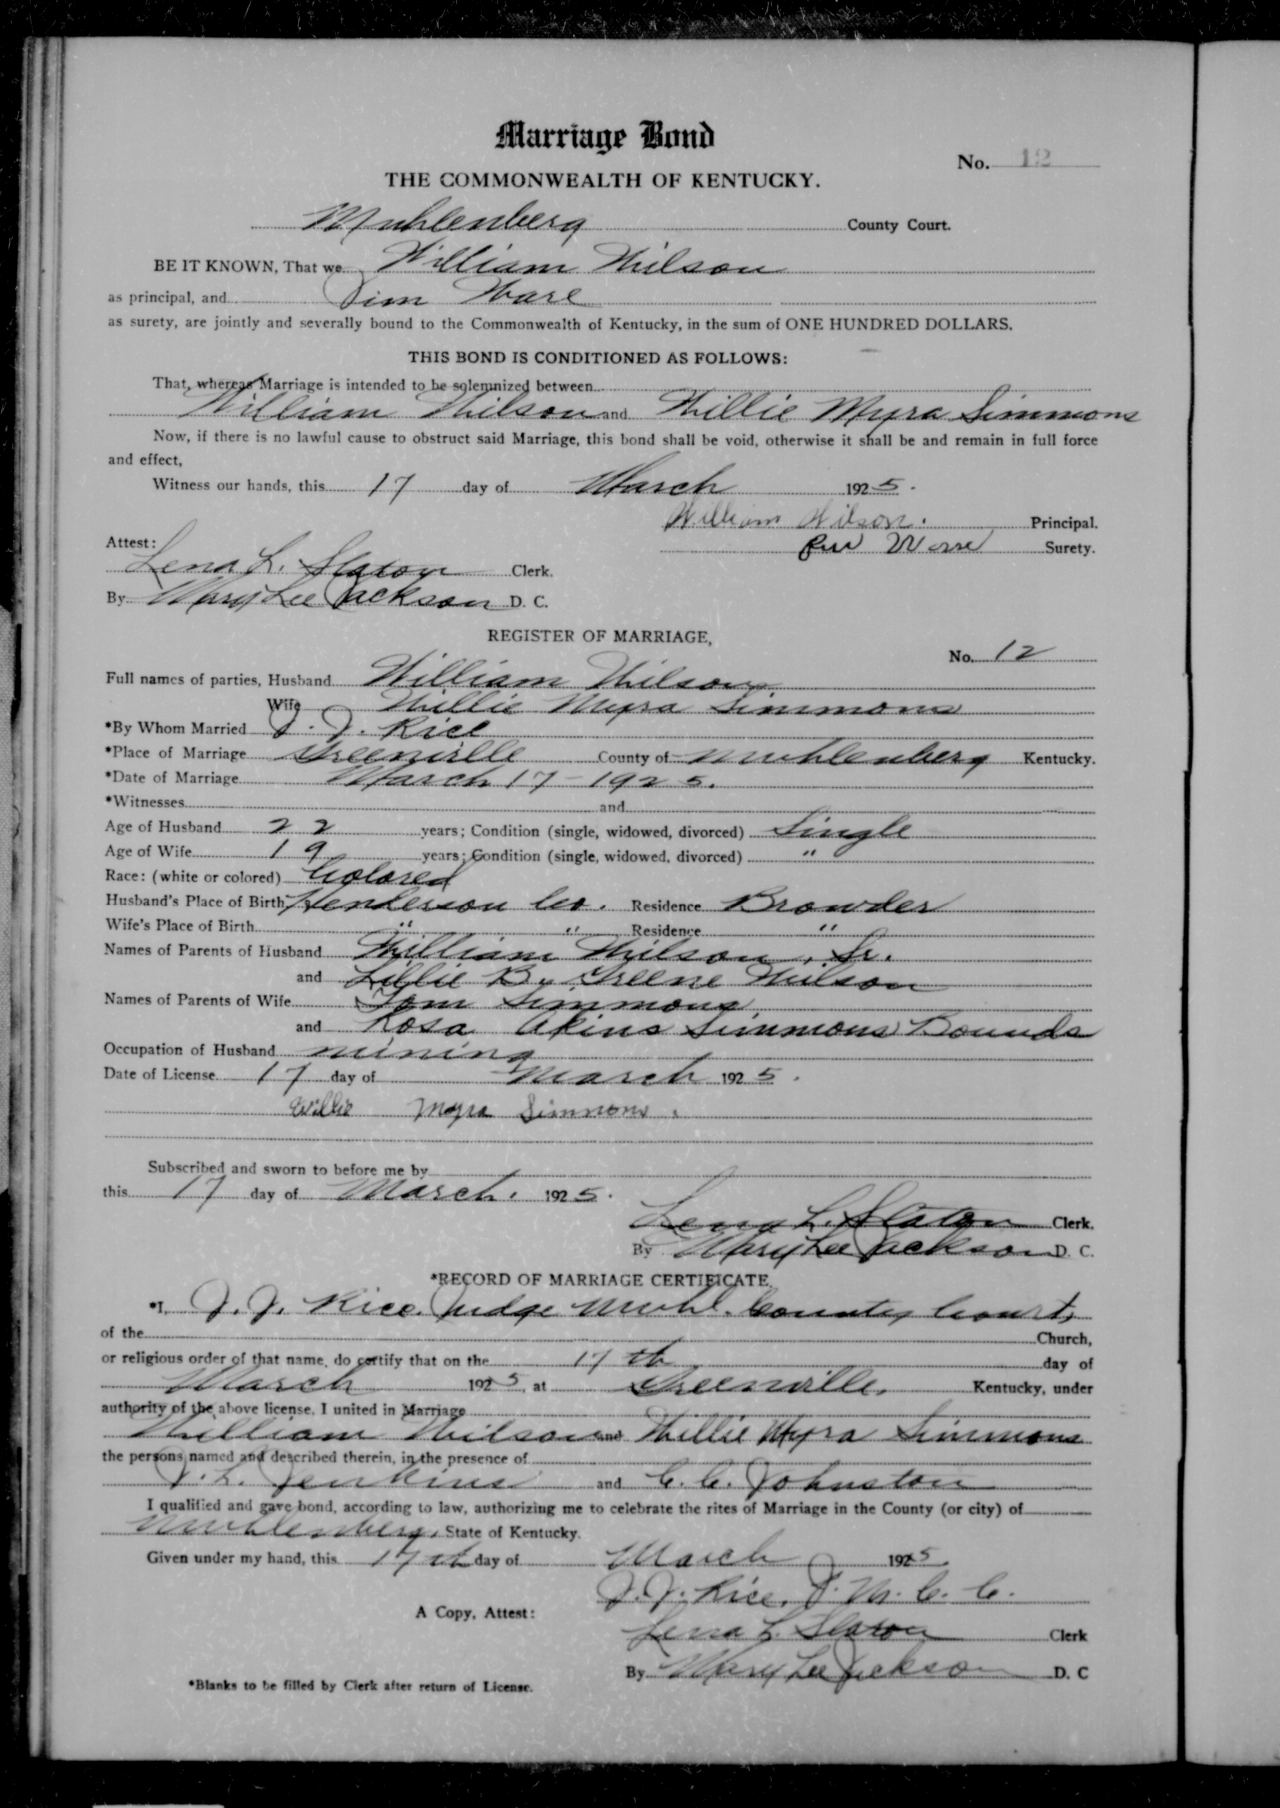 Marriage Bond
No. 12
THE COMMONWEALTH OF KENTUCKY.
Muhlenberg County Court.
BE IT KNOWN, That we William Wilson
as principal, and Jim Ware
as surety, are jointly and severally bound to the Commonwealth of Kentucky, in the sum of ONE HUNDRED DOLLARS.
THIS BOND IS CONDITIONED AS FOLLOWS:
That, whereas Marriage is intended to be solemnized between
William Wilson and Willie Myra Simmons
Now, if there is no lawful cause to obstruct said Marriage, this bond shall be void, otherwise it shall be and remain in full force
and effect,
Witness our hands, this 17 day of March 1925.
William Wilson. Principal.
Attest: Surety.
Lena L. Slaton Clerk.
By Mary Lee Jackson D. C.
REGISTER OF MARRIAGE,
No. 12
Full names of parties, Husband William Wilson
Wife Willie Myra Simmons
*By Whom Married J. J. Rice
*Place of Marriage Greenville County of Muhlenberg Kentucky.
*Date of Marriage March 17 - 1925.
*Witnesses and
Age of Husband 22 years; Condition (single, widowed, divorced) Single
Age of Wife 19 years; Condition (single, widowed, divorced) "
Race: (white or colored) Colored
Husband's Place of Birth Henderson Co. Residence Browder
Wife's Place of Birth " " Residence "
Names of Parents of Husband William Wilson, Sr.
and Lillie B. Greene Wilson
Names of Parents of Wife Tom Simmons
and Rosa Akins Simmons Bounds
Occupation of Husband mining
Date of License 17 day of March 1925.
Willie Myra Simmons.
Subscribed and sworn to before me by
this 17 day of March. 1925.
Lena L. Slaton Clerk.
By Mary Lee Jackson D. C.
*RECORD OF MARRIAGE CERTIFICATE.
*I, J. J. Rice, Judge Muhl. County Court,
of the Church,
or religious order of that name, do certify that on the 17th day of
March 1925, at Greenville, Kentucky, under
authority of the above license, I united in Marriage
William Wilson and Willie Myra Simmons
the persons named and described therein, in the presence of
J. L. Jenkins and C. C. Johnston
I qualified and gave bond, according to law, authorizing me to celebrate the rites of Marriage in the County (or city) of
Muhlenberg, State of Kentucky.
Given under my hand, this 17th day of March 1925.
J. J. Rice, J. M. C. C.
A Copy, Attest:
Lena L. Slaton Clerk
By Mary Lee Jackson D. C
*Blanks to be filled by Clerk after return of License.